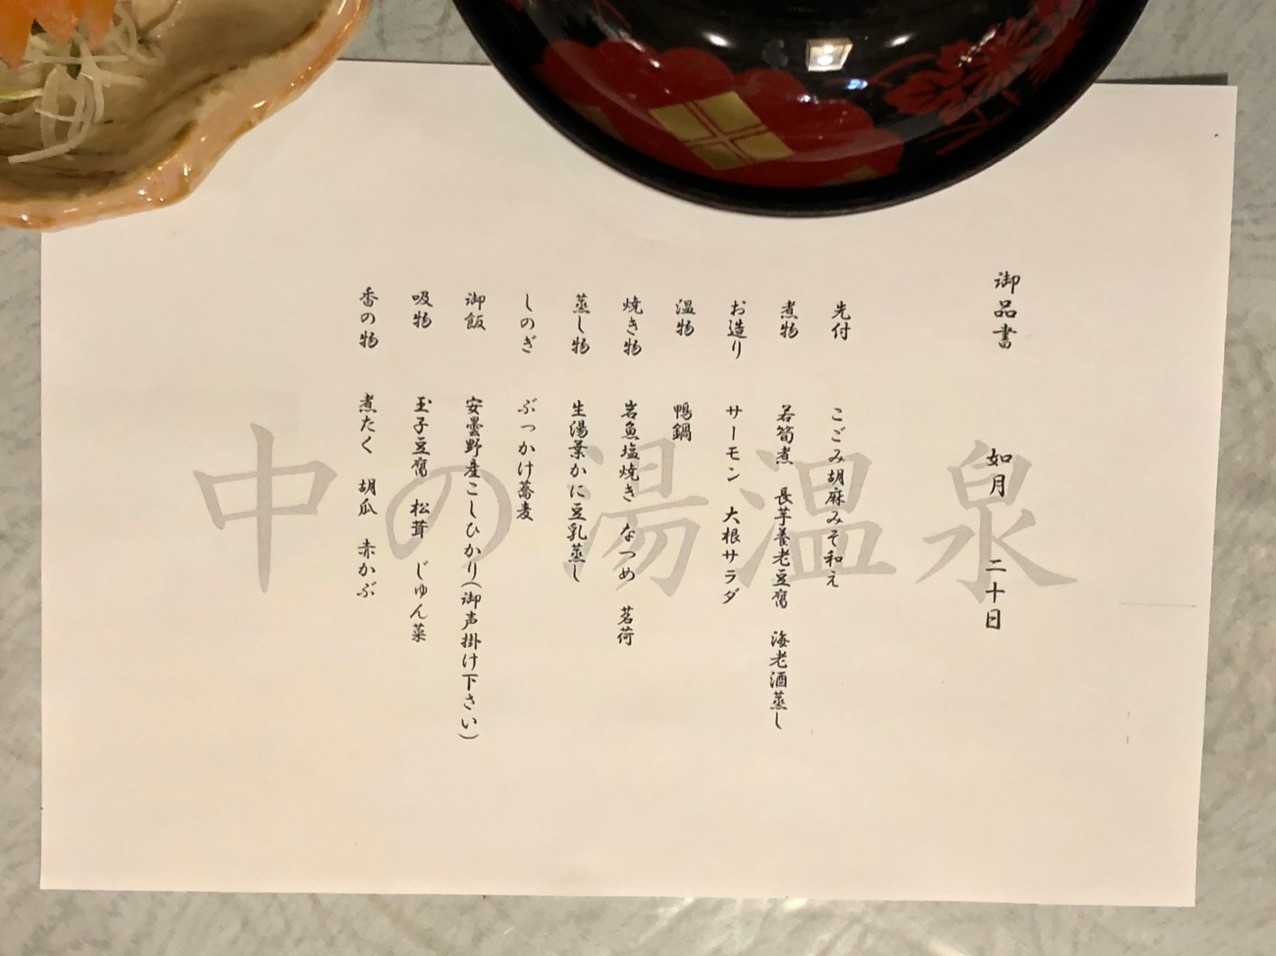 御品書　如月　二十日
先付　こごみ胡麻みそ和え
煮物　若筍煮　長芋養老豆腐　海老酒蒸し
お造り　サーモン　大根サラダ
温物　鴨鍋
焼き物　岩魚塩焼き　なつめ　茗荷
蒸し物　生湯葉かに豆乳蒸し
しのぎ　ぶっかけ蕎麦
御飯　安曇野産こしひかり(御声掛け下さい)
吸物　玉子豆腐　松茸　じゅん菜
香の物　煮たく　胡瓜　赤かぶ
中の湯温泉